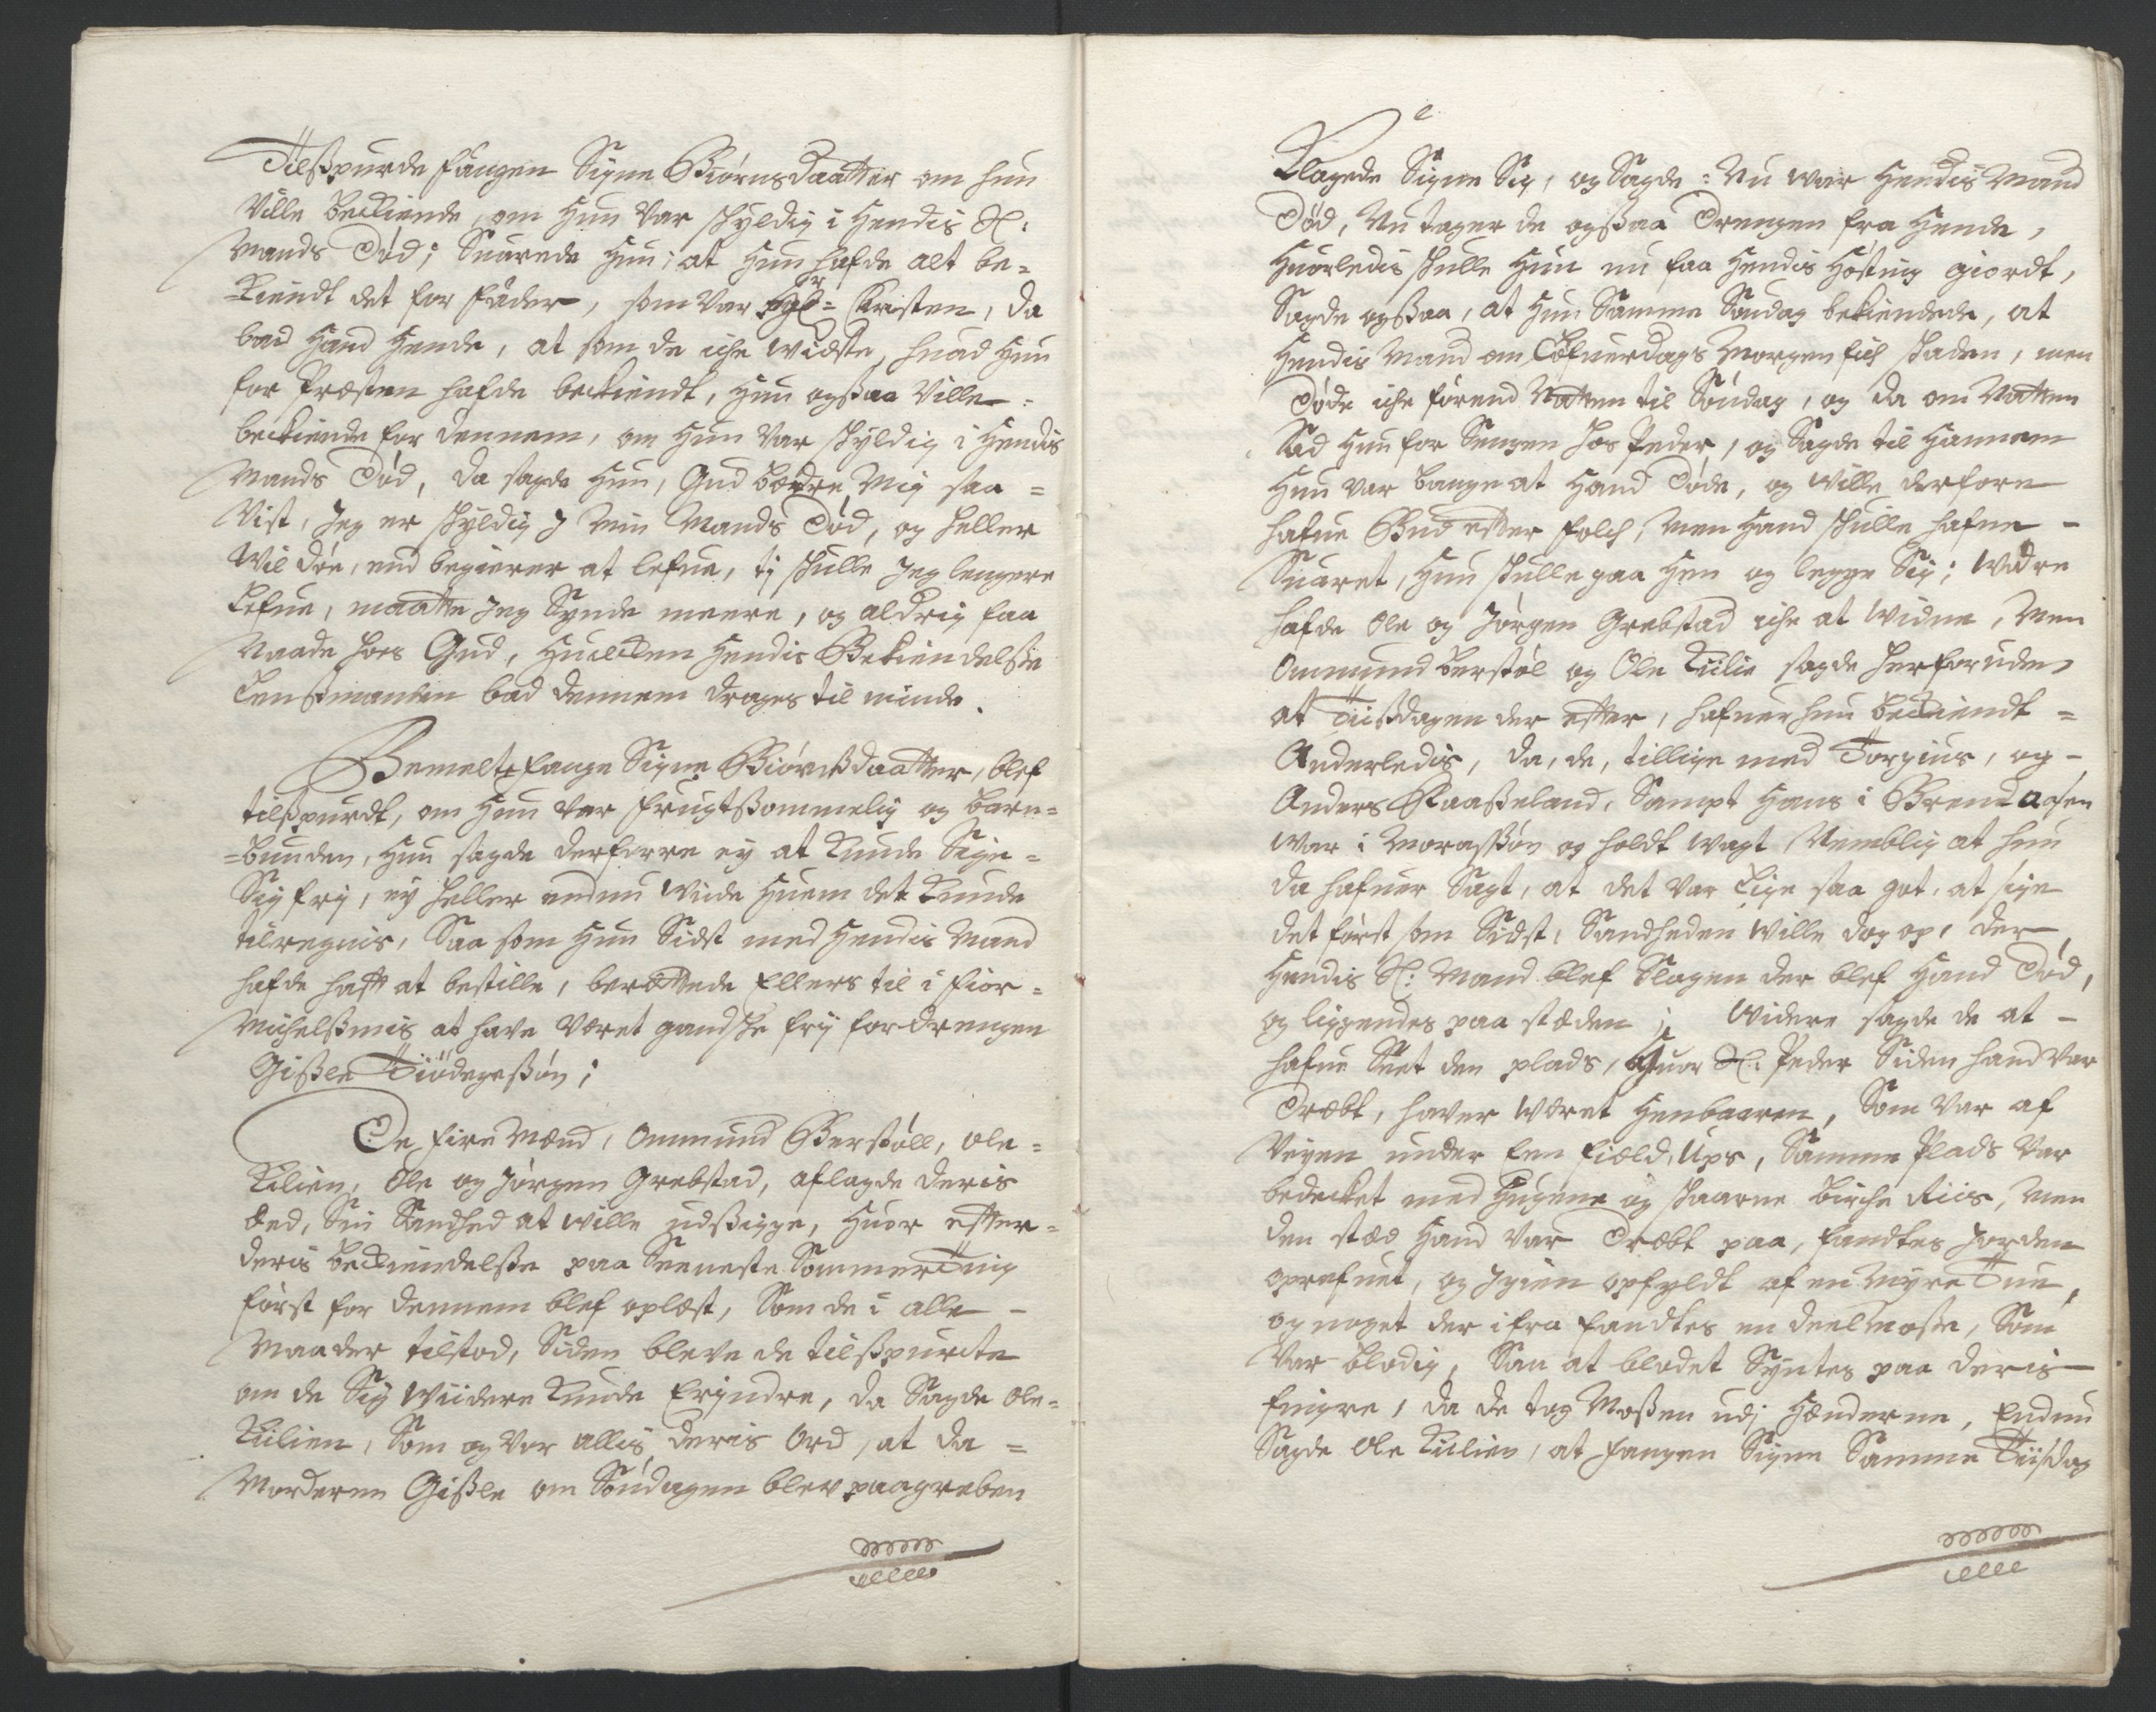 Tilspurde fangen Signe Biörnsdaatter om hun
Ville beckiende, om Hun Var skyldig i Hendis Sl:
Mands Död; Suarede Hun; at Hun hafde alt be=
=kiendt det for fader, som Var Hr: Kristen, da
bad Hand Hende, at som de iche Widste, huad Hun
for Præsten hafde beckiendt, Hun ogsaa Ville
beckiende for dennem, om Hun Var skyldig i Hendis
Mands Död, da sagde Hun, Gud bædre Mig saa=
Vist, Jeg er skyldig J Min Mands Död, og heller
Wil döe, end begierer at lefue, tj skulle Jeg lengere
Lefue, maatte Jeg Synde meere, og aldrig faa
Naade hoes Gud, Huilcken Hendis Bekiendelsse
Lensmanden bad dennem drages til minde.
Bemelte fange Signe Biörnsdaatter, blef
tilspurdt, om Hun Var frugtsommelig og barn=
=bunden, Hun sagde derforre ey at kunde Sige=
Sig fry, ey heller endnu Wide Huem det kunde
tilregnis, Saa som Hun Sidst med Hendis Mand
hafde hafft at bestille, berættede Ellers til i fior=
Michelsmis at have Været gandske fry for drengen
Gisle Tiödgessön;
De fire Mænd, Ommund Berstöll, Ole=
Kilien, Ole og Jörgen Grebstad, aflagde deris
Eed, Sin Sandhed at Wille udsigge, Huor efter=
deris beckiendelsse paa Seeneste Sommerting
först for dennem blef oplæst, Som de i alle -
Maader tilstod, Siden bleve de tilspurte
om de Sig Wiidere kunde Erindre, da Sagde Ole=
Kiilien, Som og Var allis deris Ord, at da=
Morderen Gisle om Söndagen blev paagreben
Klagede Signe Sig, og Sagde: Nu War Hendis Mand
Död, Nu tager de ogsaa Drengen fra Hende,
Huorledis skulle Hun nu faa Hendis Hösting giordt,
Sagde ogsaa, at Hun Samme Söndag bekiendede, at
Hendis Mand om Löfuerdags Morgen fich skaden, men
Döde iche förend Natten til Söndag, og da om Natten
Sad Hun for Sengen hos Peder, og Sagde til Hannem
Hun Var bange at Hand Döde, og Wille derfore
hafue Bud efter folch, Men Hand skulle hafue -
Suaret, Hun skulle gaa Hen og legge Sig; Widre
hafde Ole og Jörgen Grebstad iche at Widne, Men
Ommund Berstöl og Ole Kiilie sagde herforuden
at Tiisdagen der efter, hafuer hun beckiendt=
Anderledis, da, de, tillige med Torgius, og -
Anders Raaseland, Sampt Hans i Brendaasen
War i Morassön og holdt Wagt, Nemblig at hun
da hafuer Sagt, at det Var Lige saa got, at sige
det först som Sidst, Sandheden Wille dog op, der
Hendis Sl: Mand blef Slagen der blef Hand Död,
og liggendes paa stæden; Widere sagde de at -
hafue Seet den plads, Huor Sl: Peder Siden hand Var
Dræbt, haver Været Henbaaren, Som Var af
Veyen under Een field, Ups, Samme Plads Var
bedecket med Hugene og skaarne birche Riis, Men
den stæd Hand Var Dræbt paa, fandtes Jorden
oprefuet, og Igien opfyldt af en Myre Tue,
og noget der ifra fandtes en deel Mosse, Som
Var blodig, Saa at blodet Syntes paa deris
fingre, da de tog Mossen udj Hænderne, Endnu
Sagde Ole Kiilien, at fangen Signe Samme Tiisdag